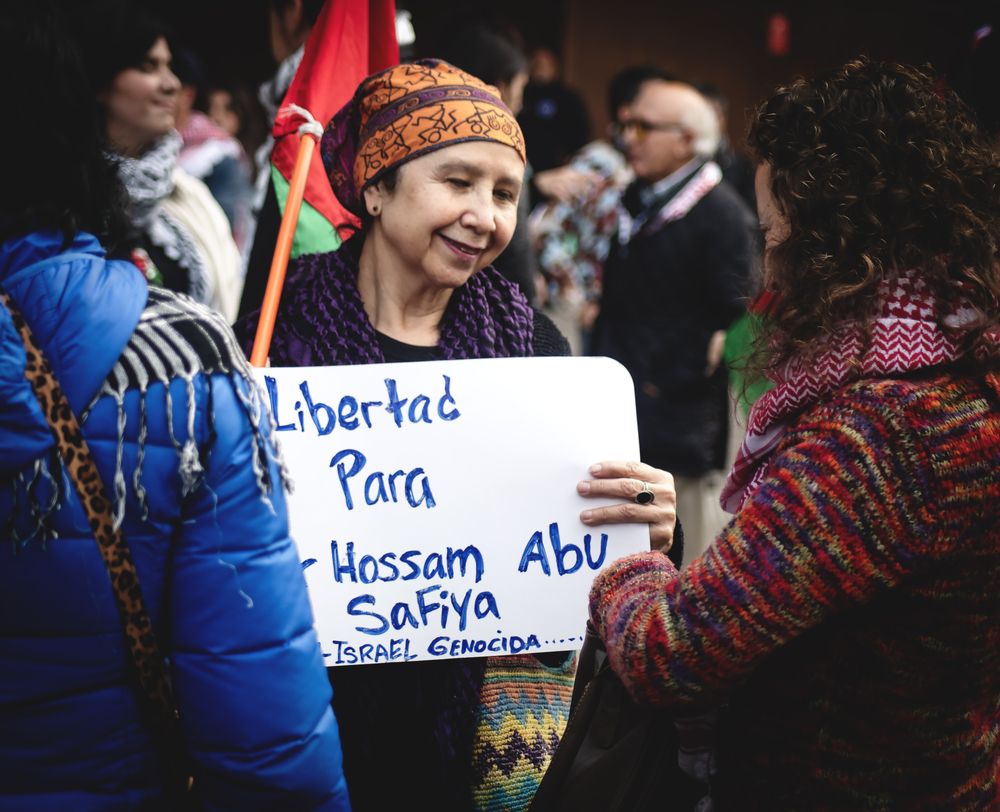 Libertad
Para
Hossam Abu
SaFiya
-ISRAEL GENOCIDA.....